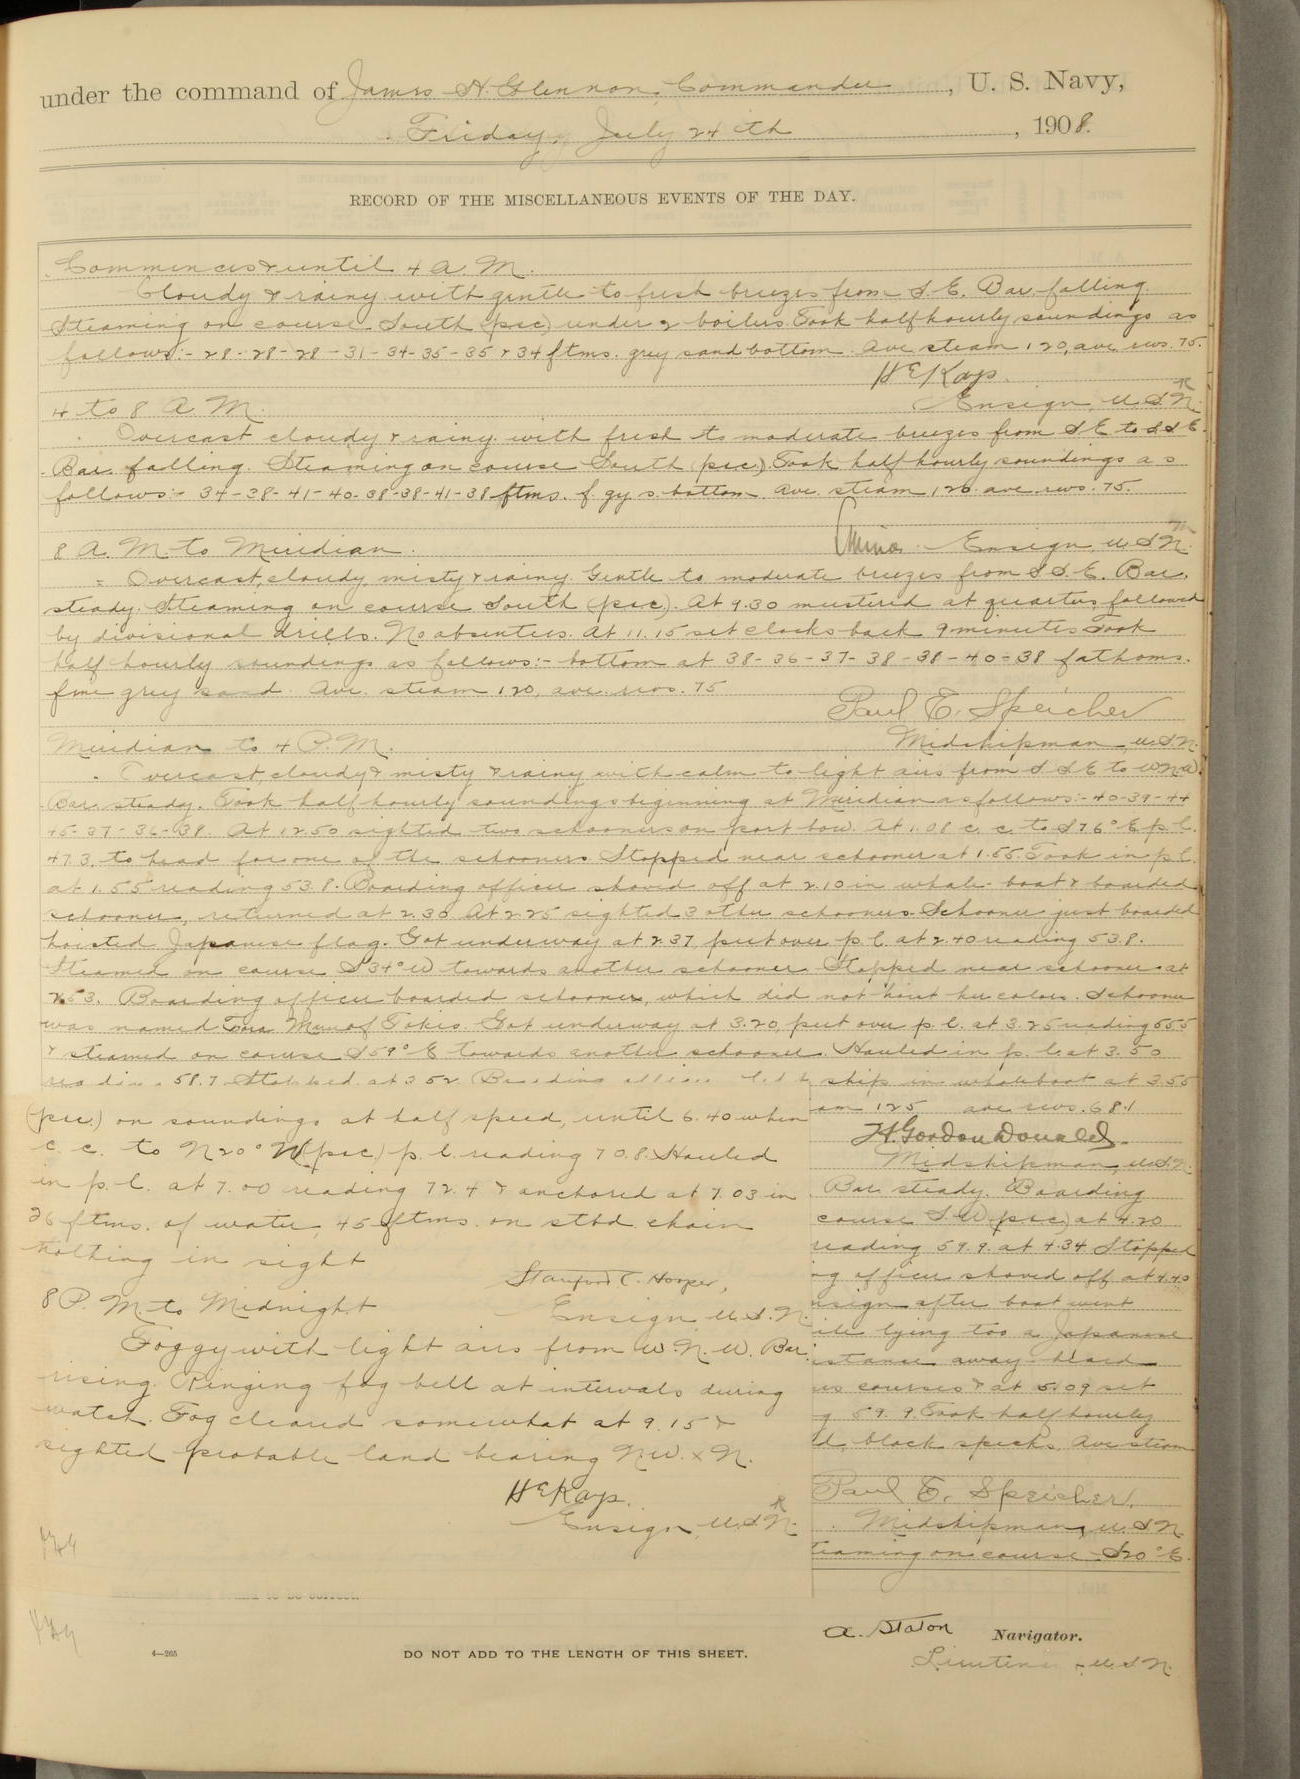 under the command of James H. Glennon, Commander, U. S. Navy,
Friday, July 24th, 1908.
RECORD OF THE MISCELLANEOUS EVENTS OF THE DAY.
Commences & until 4 A. M.
Cloudy & rainy with gentle to fresh breezes from S. E. Bar. falling.
Steaming on course South (psc) under 2 boilers. Took half hourly soundings as
follows:- 28-28-28-31-34-35-35 & 34 ftms. grey sand bottom. Ave steam 120, ave revs. 75.
H E Kays.
Ensign, U.S.N.
4 to 8 A. M.
Overcast cloudy & rainy with fresh to moderate breezes from S E to S S E.
Bar. falling. Steaming on course South (psc.). Took half hourly soundings as
follows:- 34-38-41-40-38-38-41-38 ftms. f. gy s. bottom. Ave. steam 120 ave revs. 75.
Ensign, U.S.N.
8 A. M. to Meridian.
Overcast, cloudy misty & rainy. Gentle to moderate breezes from S S E. Bar.
steady. Steaming on course South (psc). At 9.30 mustered at quarters, followed
by divisional drills. No absentees. At 11.15 set clocks back 9 minutes Took
half hourly soundings as follows:- bottom at 38-36-37-38-38-40-38 fathoms.
fine grey sand. Ave. steam 120, ave. revs. 75
Paul E. Speicher
Midshipman U.S.N.
Meridian to 4 P. M.
Overcast, cloudy & misty & rainy with calm to light airs from S S E to W N W.
Bar. steady. Took half hourly soundings beginning at Meridian as follows:- 40-39-44
45-37-36-38. At 12.50 sighted two schooners on port bow. At 1.08 c. c. to S 76° E p. l.
47.3. to head for one of the schooners Stopped near schooner at 1.55. Took in p. l.
at 1.55 reading 53.8. Boarding officer shoved off at 2.10 in whale-boat & boarded
schooner, returned at 2.30. At 2.25 sighted 3 other schooners. Schooner just boarded
hoisted Japanese flag. Got underway at 2.37, put over p. l. at 2.40 reading 53.8.
Steamed on course S 34° W towards another schooner. Stopped near schooner at
2.53. Boarding officer boarded schooner, which did not hoist her colors. Schooner
was named Tora Maru of Tokio. Got underway at 3.20, put over p. l. at 3.25 reading 55.5
& steamed on course S 59° E towards another schooner. Hauled in p. l. at 3.50
reading 58.7 Stopped at 3 52. Boarding officer left ship in whaleboat at 3.55
am 125 ave revs. 68.1
H. Gordon Donald.
Midshipman, U.S.N.
Bar. steady. Boarding
course S. W (psc) at 4.20
reading 59.9. at 4.34 Stopped
ng officer shoved off at 4.40
nsign after boat went
ile lying too a Japanese
istance away heard
us courses & at 5.09 set
g 59.9. Took half hourly
d, black specks. Ave steam
Paul E. Speicher.
Midshipman, U.S.N
teaming on course S 20° E.
(psc.) on soundings at half speed, until 6.40 when
c. c. to N 20° W (psc) p. l. reading 70.8. Hauled
in p. l. at 7.00 reading 72.4 & anchored at 7.03 in
26 ftms. of water, 45 ftms. on stbd chain
nothing in sight
Stanford C. Hooper,
Ensign U.S.N.
8 P. M. to Midnight
Foggy with light airs from W. N. W. Bar.
rising. Ringing fog bell at intervals during
watch. Fog cleared somewhat at 9.15 &
sighted probable land bearing N W. x N.
H E Kays.
Ensign, U.S.N.
A. Staton Navigator.
4—265
DO NOT ADD TO THE LENGTH OF THIS SHEET.
U.S.N.